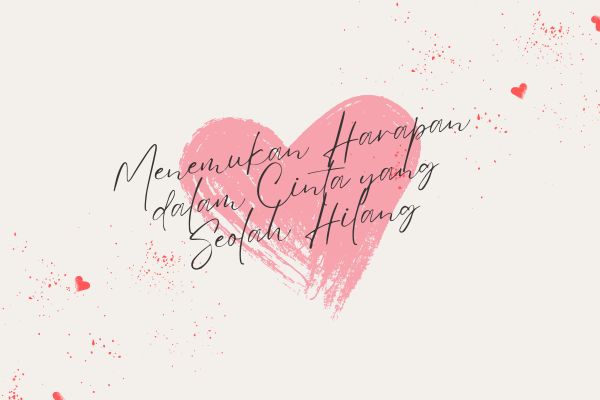 Menemukan Harapan
dalam Cinta yang
Seolah Hilang